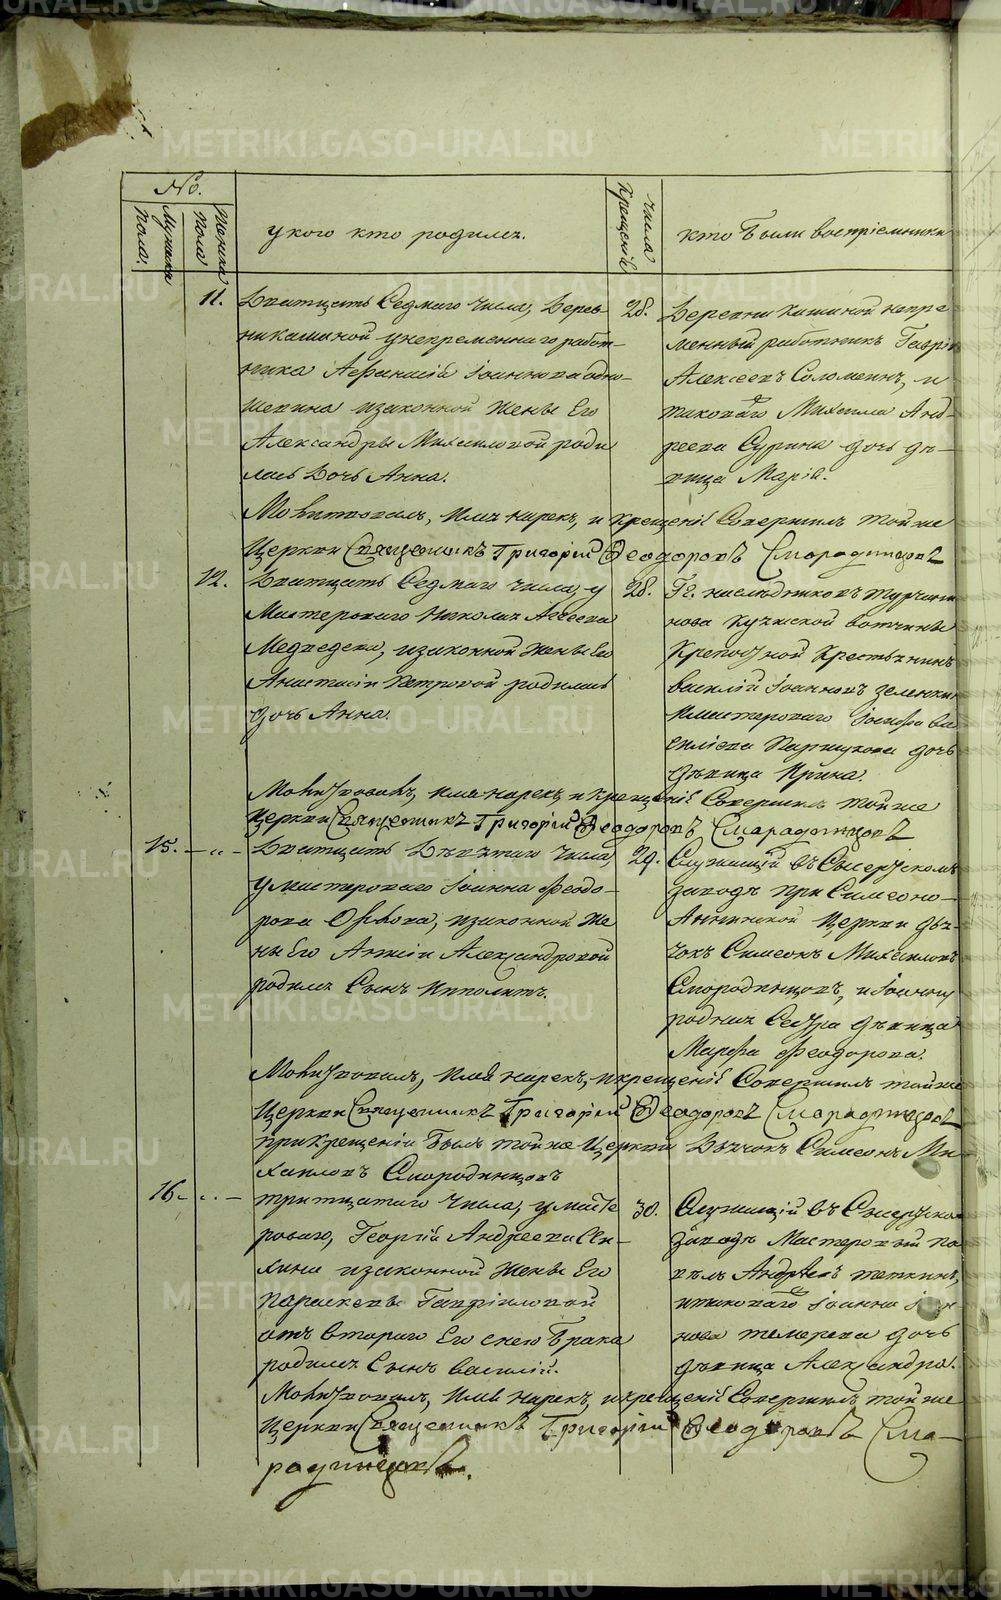 №.
Мужска пола.
Женска пола
у кого кто родился.
числа крещенiй
кто были воспрiемники
11.
Дватцать Седмаго числа, Дерев-
ни кашиной унепременнаго работ-
ника Афанасiя Iоаннова
изаконной жены Его
Александры Михаиловой роди
лась Дочь Анна.
28.
Деревни кашиной непре-
менный работникъ Гаврiи
Алексеевъ Соломеинъ, и
таковаго Михаила Анд-
реева Сурина дочь дѣ-
вица Марiя.
Молитвовалъ, Имя нарекъ, и крещенiе Совершилъ тойже
Церкви Священникъ Григорiй Феодоровъ Смарадинцовъ
12.
Дватцать Седмаго числа, у
Мастероваго Николая
Медведева, изаконной жены Его
Анастасiи Петровой родилась
дочь Анна.
28.
Гг. наслѣдниковъ турчани
нова вотчины
Крепостной Крестьянинъ
василiй Iоанновъ зеленкин
имастероваго Iосифа ва
силiева Паршукова дочь
дѣвица Ирина.
Молитвовалъ, имя нарекъ, и крещенiе Совершилъ тойже
Церкви Священникъ Григорiй Феодоровъ Смарадинцовъ
15.
Дватцать Девятаго числа,
умастероваго Iоанна Феодо-
рова изаконной же
ны Его Александровой
родился Сынъ Ипполитъ.
29.
Служащiй въ Сысертскомъ
заводѣ при Симеоно-
Аннинской Церкви дья-
чокъ Симеонъ Михаиловъ
Смородинцовъ, и Iоанну
родная Сестра дѣвица
Марфа Феодорова.
Молитвовалъ, Имя нарекъ, и крещенiе Совершилъ тойже
Церкви Священникъ Григорiй Феодоровъ Смарадинцовъ
прикрещенiи былъ тойже Церкви Дьячокъ Симеонъ Ми-
хаиловъ Смородинцовъ
16.
тритцатаго числа, умасте
роваго, Георгiй Андреева Се-
кина изаконной жены Его
параскевы Гаврiиловой
отъ втораго Его снею брака
родился Сынъ василiй.
30.
Служащiй въ Сысертско
заводѣ Мастеровый па
велъ Андреевъ
итаковаго Iоанна Iоан
нова темерева дочь
дѣвица Александра.
Молитвовалъ, Имя нарекъ, и крещенiе Совершилъ тойже
Церкви Священникъ Григорiй Феодоровъ Сма-
радинцовъ.
METRIKI.GASO-URAL.RU